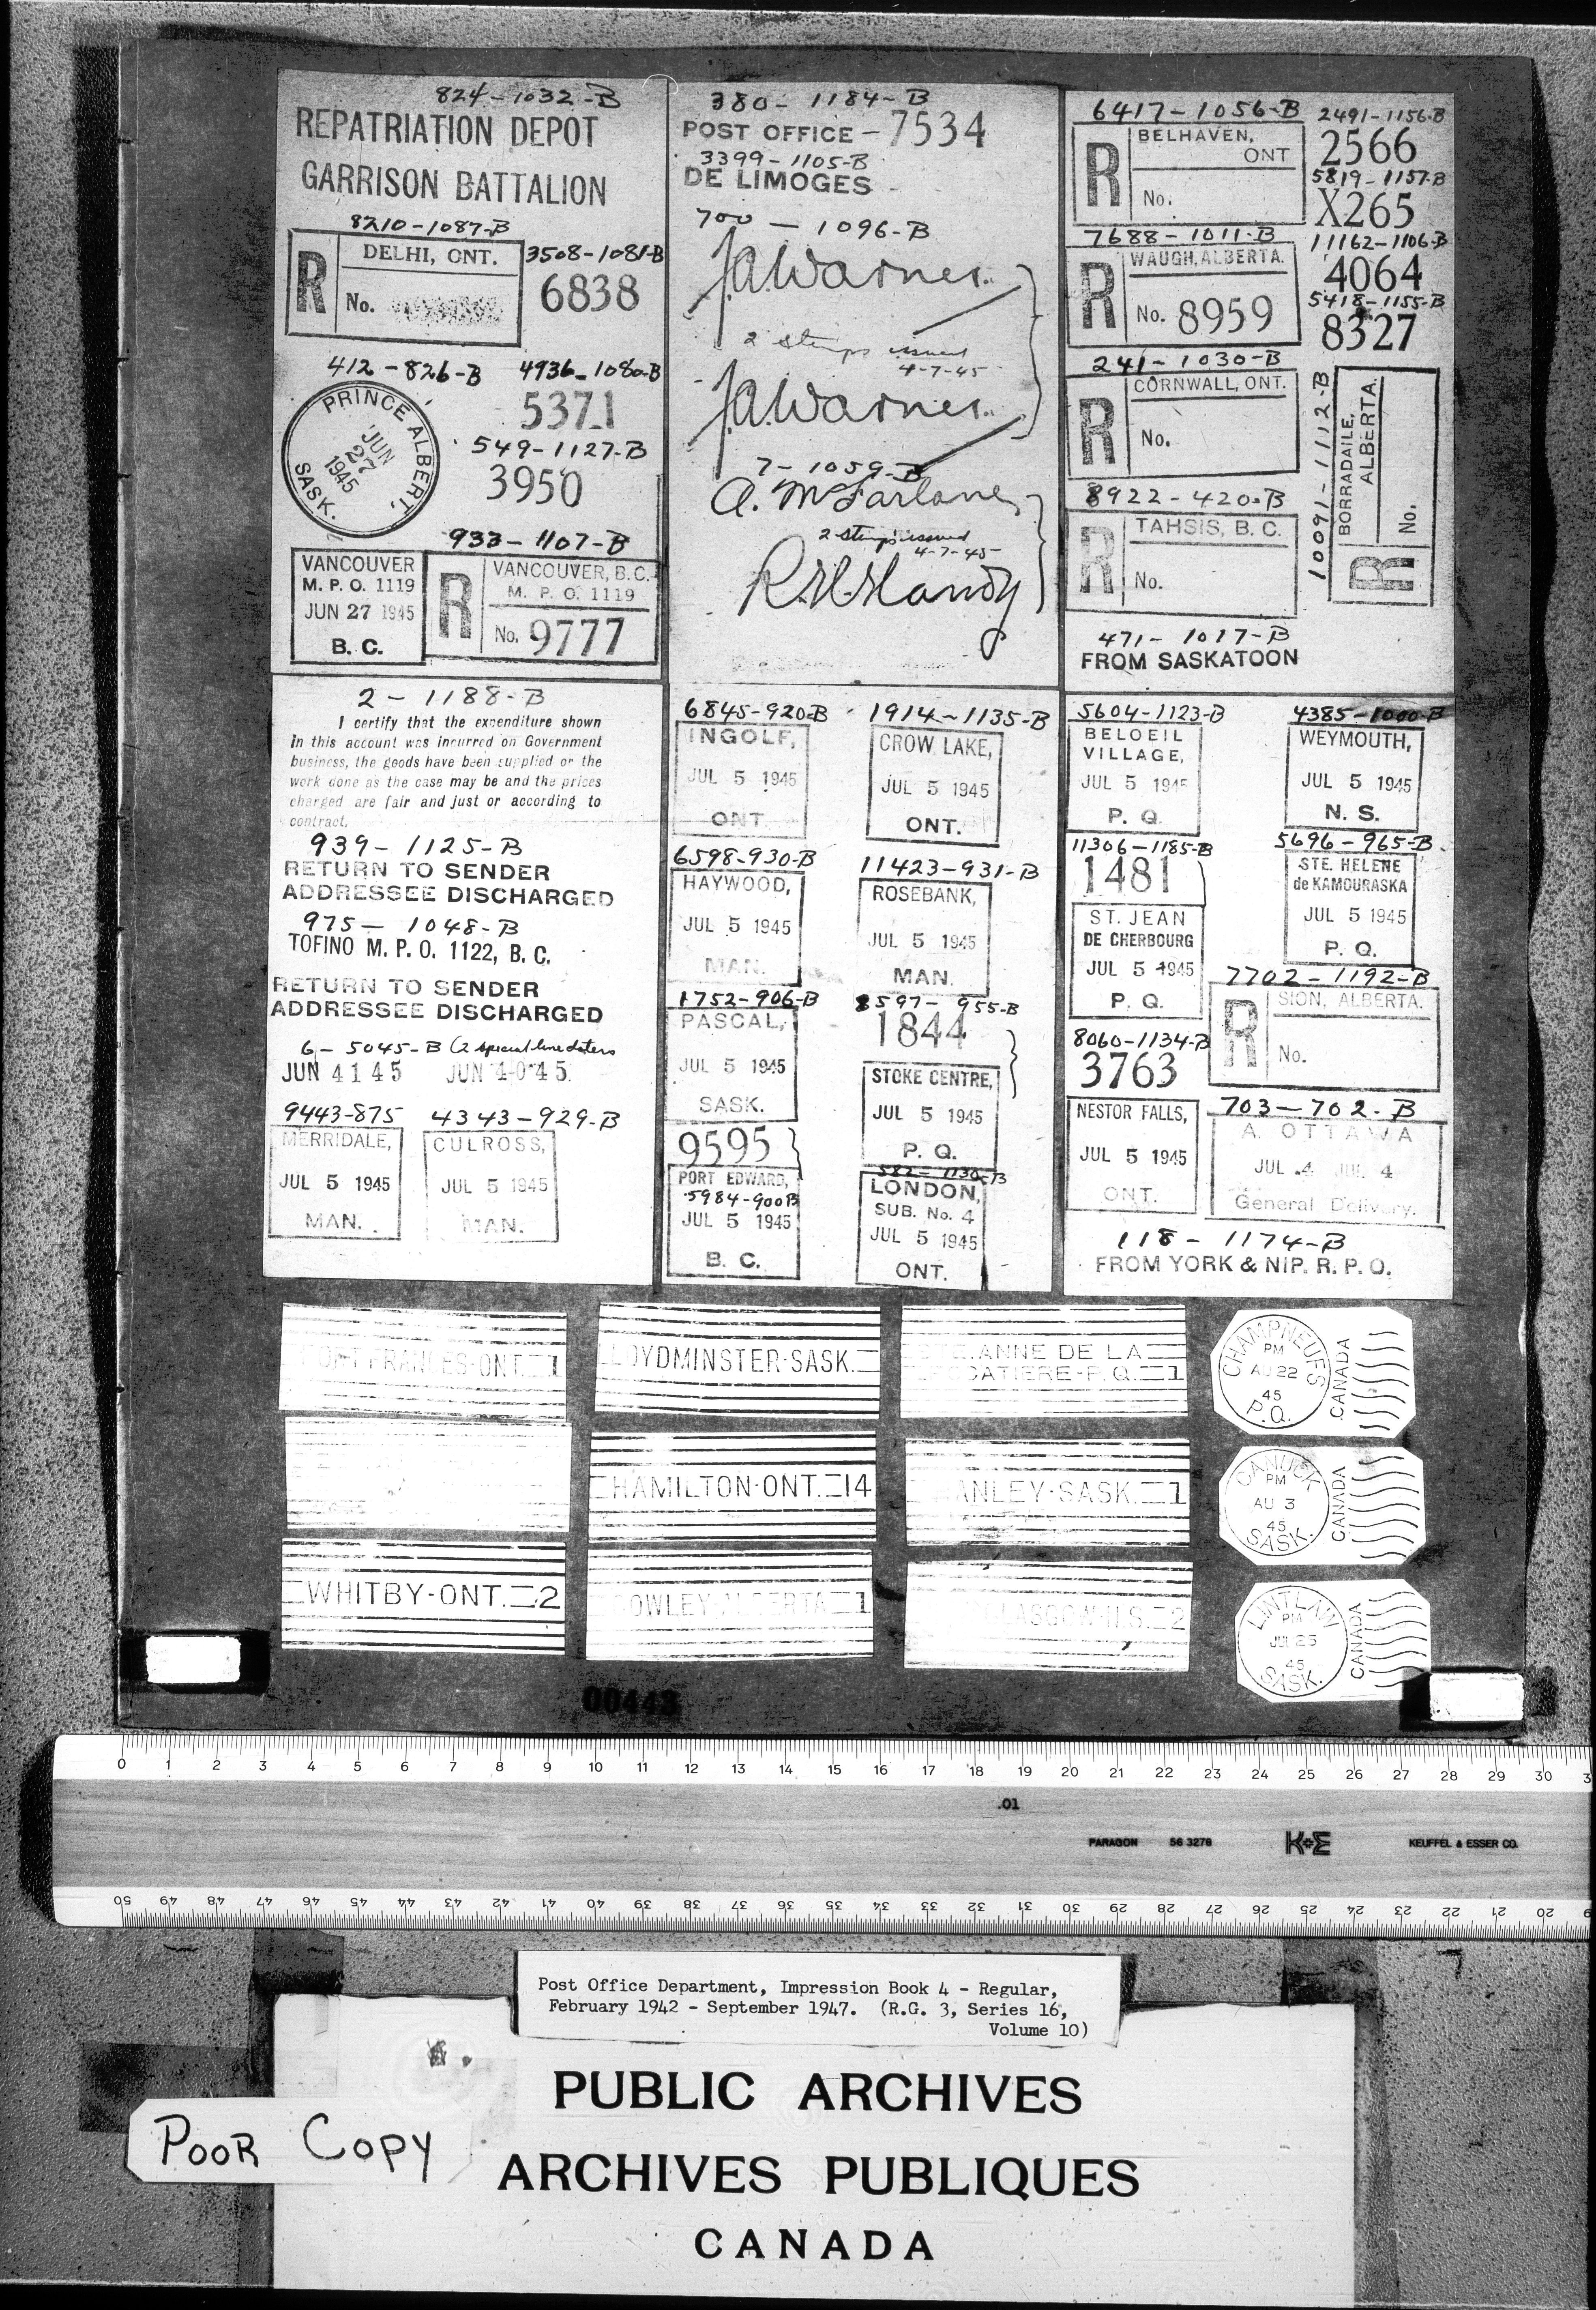 824-1032-B
REPATRIATION DEPOT
GARRISON BATTALION
8210-1087-B
R
DELHI, ONT.
No.
3508-1081-B
6838
412-826-B
PRINCE ALBERT,
JUN
27
1945
SASK.
4936-1080-B
5371
549-1127-B
3950
933-1107-B
VANCOUVER
M. P. O. 1119
JUN 27 1945
B. C.
R
VANCOUVER, B.C.
M. P. O. 1119
No. 9777
380- 1184-B
POST OFFICE - 7534
3399-1105-B
DE LIMOGES
700 - 1096-B
J.A. Warner.
2 stamps issued
4-7-45
J.A. Warner.
7-1059-B
A. McFarlane
2 stamps issued
4-7-45
R.H. Handy
6417-1056-B
R
BELHAVEN,
ONT
No.
2491-1156-B
2566
5819-1157-B
X265
7688-1011-B
R
WAUGH, ALBERTA.
No. 8959
11162-1106-B
4064
5418-1155-B
8327
241-1030-B
R
CORNWALL, ONT.
No.
10091-1112-B
BORRADAILE,
ALBERTA.
R
No.
8922-420-B
R
TAHSIS, B. C.
No.
471-1017-B
FROM SASKATOON
2-1188-B
I certify that the expenditure shown
in this account was incurred on Government
business, the goods have been supplied or the
work done as the case may be and the prices
charged are fair and just or according to
contract.
939-1125-B
RETURN TO SENDER
ADDRESSEE DISCHARGED
975-1048-B
TOFINO M. P. O. 1122, B. C.
RETURN TO SENDER
ADDRESSEE DISCHARGED
6-5045-B (2 special line daters
JUN 4 1 4 5 JUN 4-0 4 5
9443-875
MERRIDALE,
JUL 5 1945
MAN.
4343-929-B
CULROSS,
JUL 5 1945
MAN.
6845-920-B
INGOLF,
JUL 5 1945
ONT.
1914-1135-B
CROW LAKE,
JUL 5 1945
ONT.
6598-930-B
HAYWOOD,
JUL 5 1945
MAN.
11423-931-B
ROSEBANK,
JUL 5 1945
MAN.
1752-906-B
PASCAL,
JUL 5 1945
SASK.
8597-955-B
1844
STOKE CENTRE,
JUL 5 1945
P. Q.
9595
PORT EDWARD,
5984-900B
JUL 5 1945
B. C.
582-1130-B
LONDON,
SUB. No. 4
JUL 5 1945
ONT.
5604-1123-B
BELOEIL
VILLAGE,
JUL 5 1945
P. Q.
4385-1000-B
WEYMOUTH,
JUL 5 1945
N. S.
11306-1185-B
1481
ST. JEAN
DE CHERBOURG
JUL 5 1945
P. Q.
5696-965-B.
STE. HELENE
de KAMOURASKA
JUL 5 1945
P. Q.
7702-1192-B
R
SION, ALBERTA.
No.
8060-1134-B
3763
NESTOR FALLS,
JUL 5 1945
ONT.
703-702-B
A. OTTAWA
JUL 4 JUL 4
General Delivery.
118-1174-B
FROM YORK & NIP. R. P. O.
FRANCES-ONT. 1
LOYDMINSTER-SASK.
ANNE DE LA
CATIERE-P.Q. 1
CHAMPNEUFS
PM
AU 22
45
P.Q.
CANADA
HAMILTON-ONT. 14
ANLEY-SASK. 1
CANUCK
PM
AU 3
45
SASK.
CANADA
WHITBY-ONT. 2
OWLEY-ALBERTA 1
ASGOW-N.S. 2
LINTLAW
PM
JUL 25
45
SASK.
CANADA
00443
0 1 2 3 4 5 6 7 8 9 10 11 12 13 14 15 16 17 18 19 20 21 22 23 24 25 26 27 28 29 30 3
.01
PARAGON 56 3278 K+E KEUFFEL & ESSER CO.
50 49 48 47 46 45 44 43 42 41 40 39 38 37 36 35 34 33 32 31 30 29 28 27 26 25 24 23 22 21 20
Post Office Department, Impression Book 4 - Regular,
February 1942 - September 1947. (R.G. 3, Series 16,
Volume 10)
PUBLIC ARCHIVES
POOR COPY
ARCHIVES PUBLIQUES
CANADA